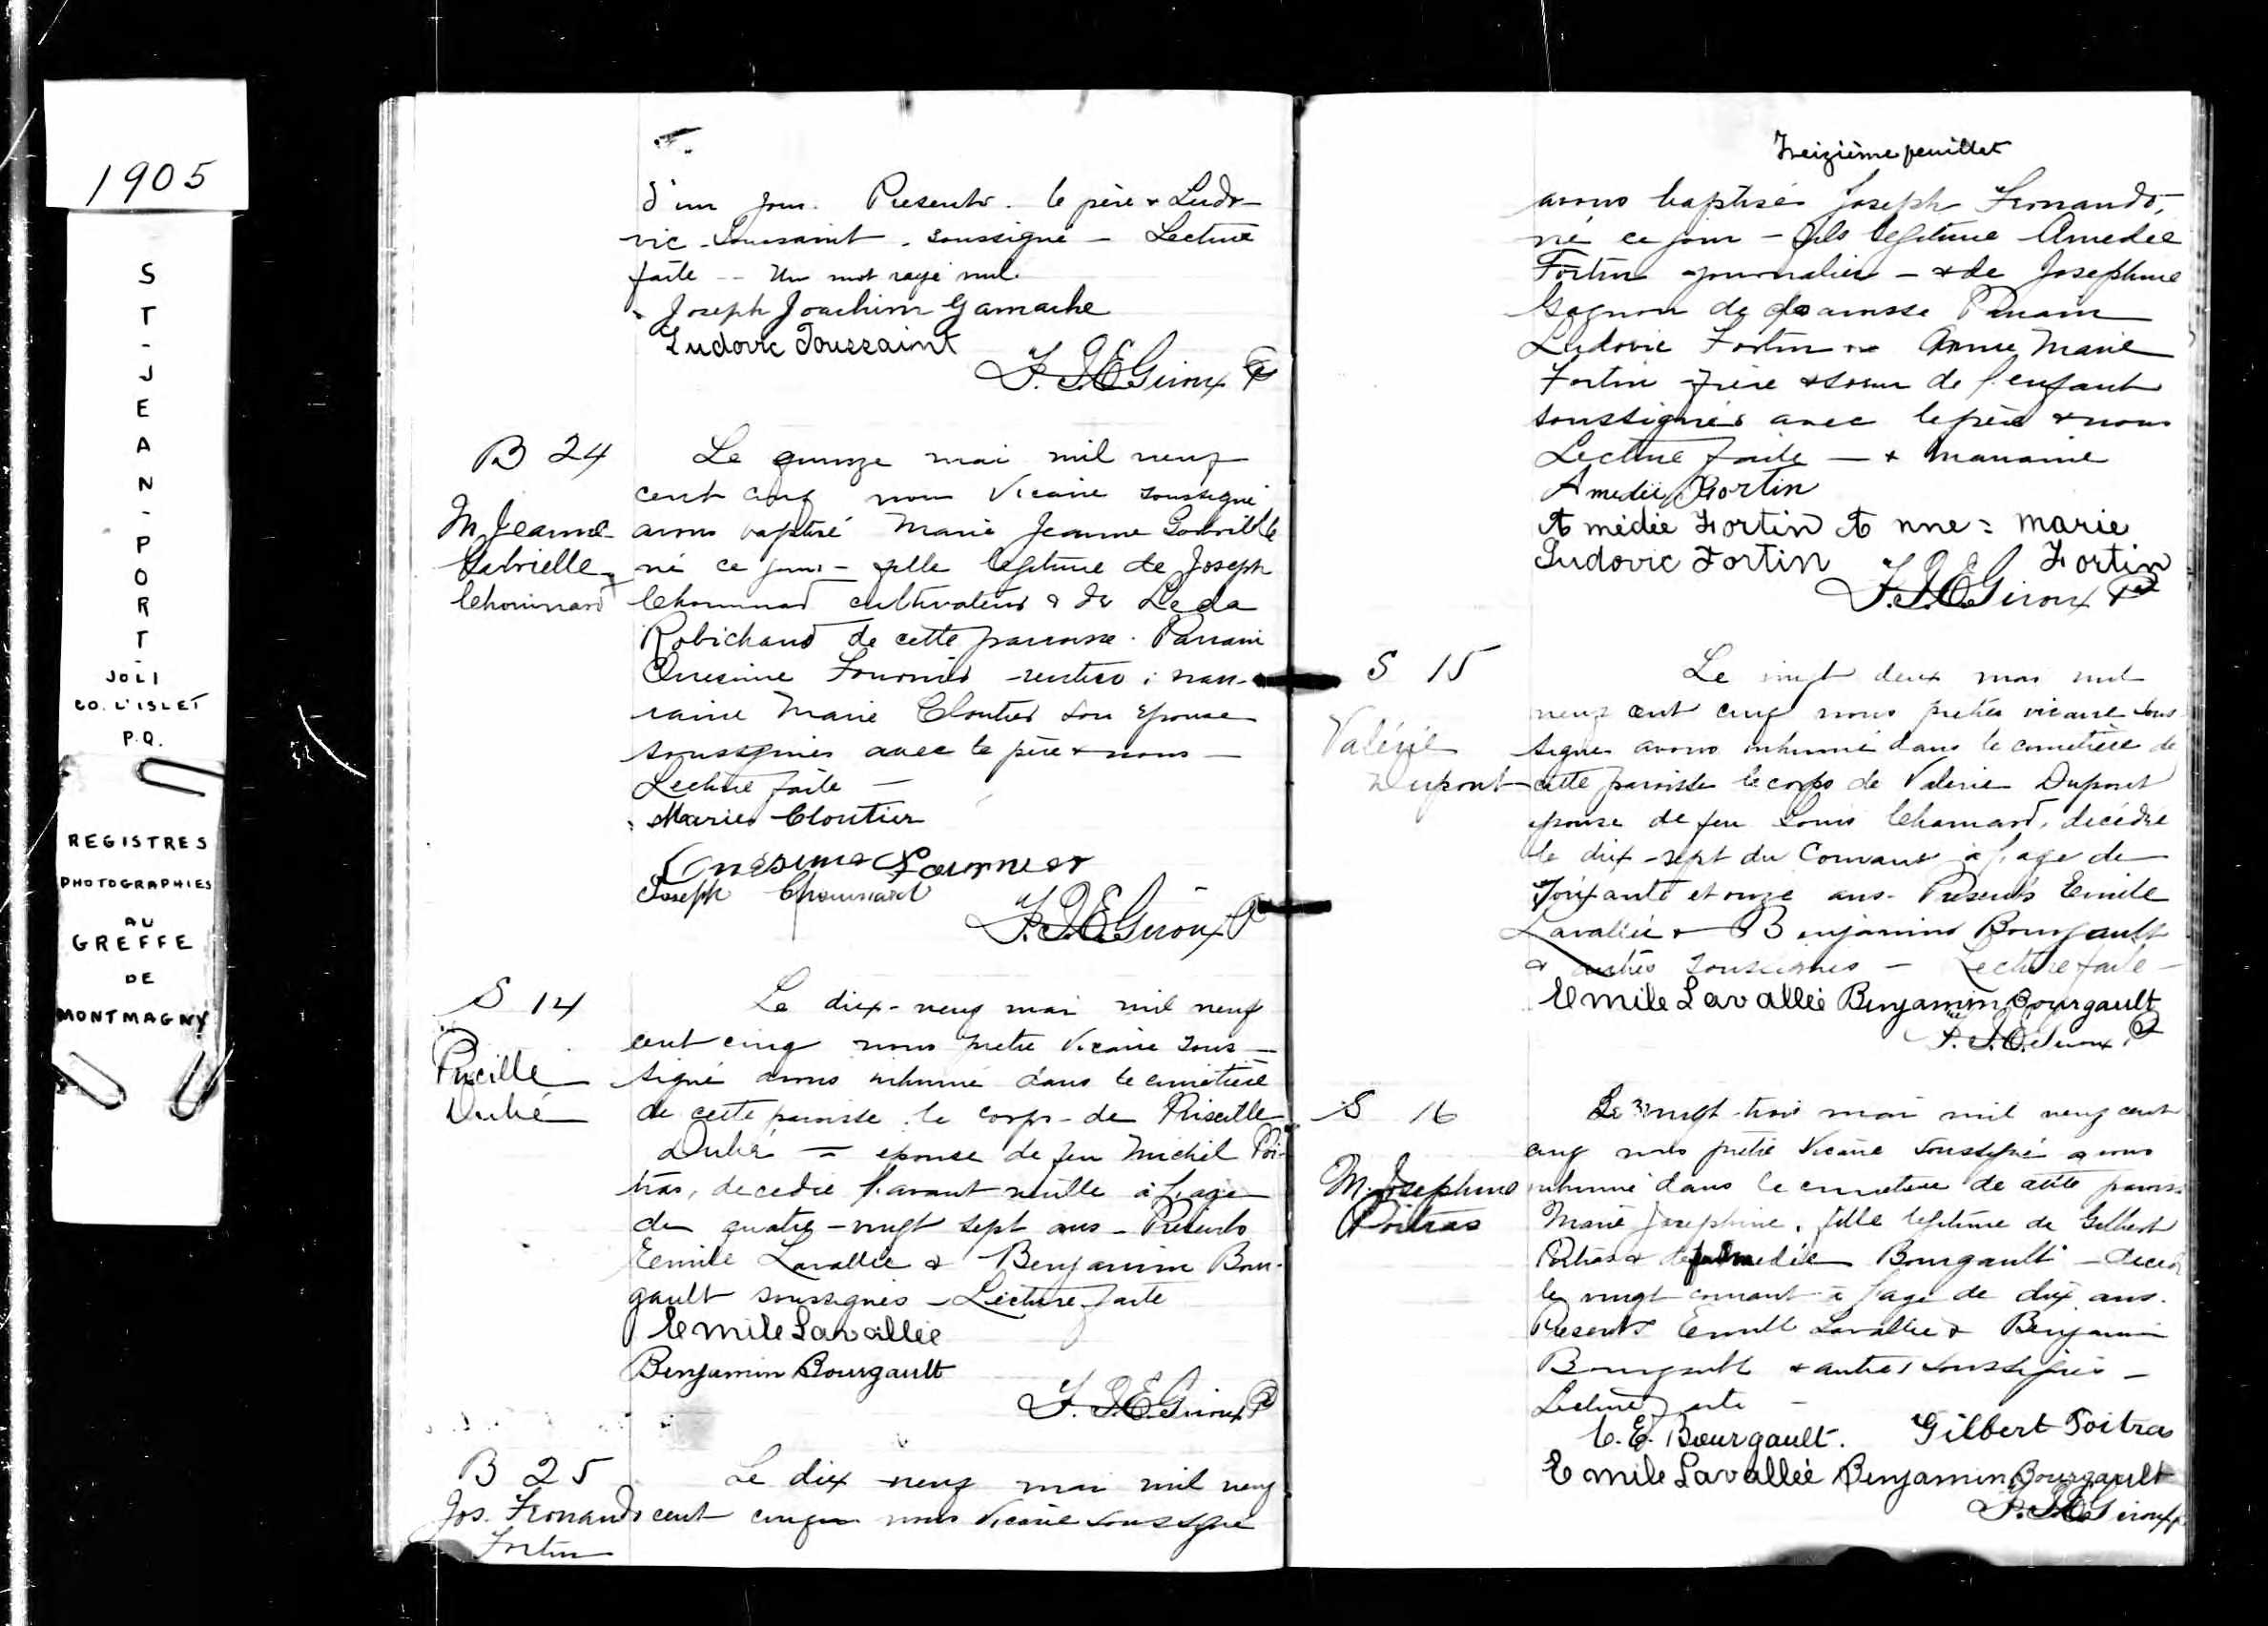 1905
ST-JEAN-PORT-
JOLI
CO. L'ISLET
P.Q.
REGISTRES
PHOTOGRAPHIES
AU
GREFFE
DE
MONTMAGNY
d'un jour. Presents. le père & Ludo-
vic Toussaint. soussigné - Lecture
faite -- Un mot rayé nul.
Joseph Joachim Gamache
Ludovic Toussaint
F. J. E. Giroux P
B 24
M. Jeanne
Gabrielle
Chouinard
Le quinze mai mil neuf
cent cinq nous Vicaire soussigné
avons baptisé Marie Jeanne
né ce jour - fille legitime de Joseph
Chouinard cultivateur & de Leda
Robichaud de cette paroisse. Parrain
Onesime Fournier rentier; mar-
raine Marie Cloutier son épouse
soussignés avec le père & nous -
Lecture faite -
Marie Cloutier
Onésime Fournier
Joseph Chouinard
F. J. E. Giroux P
S 14
Pricille
Dubé
Le dix-neuf mai mil neuf
cent cinq nous pretre Vicaire sous-
signé avons inhumé dans le cimetière
de cette paroisse le corps de Priscille
Dubé = epouse de feu Michel Poi-
tras, decedée l'avant veille à l'age
de quatre-vingt sept ans - Présents
Emile Lavallée & Benjamin Bour-
gault soussignés - Lecture faite
Emile Lavallée
Benjamin Bourgault
F. J. E. Giroux P
B 25
Jos. Fernando
Fortin
Le dix neuf mai mil neuf
cent cinq nous Vicaire soussigné
Treizième feuillet
avons baptisé Joseph Fernando,
né ce jour - fils legitime Amedée
Fortin journalier - & de Josephine
Gagnon de paroisse Parrain
Ludovic Fortin Anne Marie
Fortin frère & soeur de l'enfant
soussignés avec le père & nous
Lecture faite - & marraine
Amedée Fortin
Amédée Fortin Anne = Marie
Ludovic Fortin Fortin
F. J. E. Giroux P
S 15
Valérie
Dupont
Le vingt deux mai mil
neuf cent cinq nous prêtre vicaire sous
signé avons inhumé dans le cimetière de
cette paroisse le corps de Valerie Dupont
epouse de feu Louis Chouinard, décédée
le dix-sept du Courant à l'age de
soixante et onze ans. Présents Emile
Lavallée & Benjamin Bourgault
& autres soussignés - Lecture faite -
Emile Lavallée Benjamin Bourgault
F. J. E. Giroux P
S 16
M. Josephine
Poitras
Le vingt trois mai mil neuf cent
cinq nous prêtre Vicaire soussigné avons
inhumé dans le cimetière de cette
Marie Josephine, fille legitime de Gilbert
Poitras & de Bourgault -
le vingt courant à l'age de dix ans.
Présents Emile Lavallée & Benjamin
Bourgault & autres soussignés -
Lecture faite -
C. E. Bourgault. Gilbert Poitras
Emile Lavallée Benjamin Bourgault
F. J. E. Giroux p